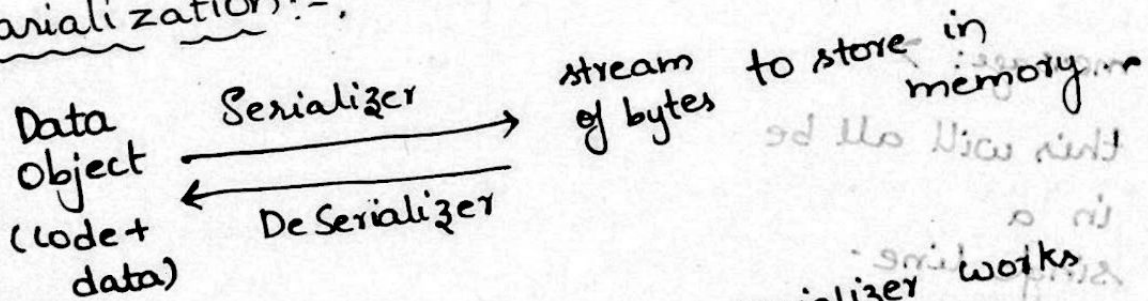 arialization:-.
Data Object (code+ data)
Serializer
DeSerializer
stream of bytes
to store in memory...
this will all be
in a
works